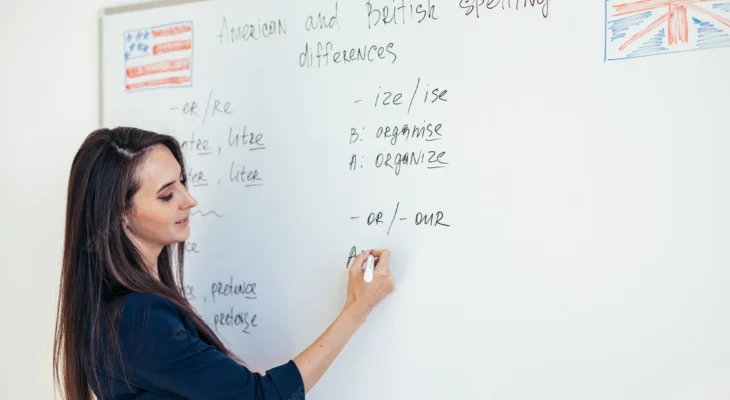 American and British spelling
differences
-er/re
ntre, litre
ter, liter
ce
, pretence
pretense
- ize/ise
B: organise
A: organize
- or/- our
A